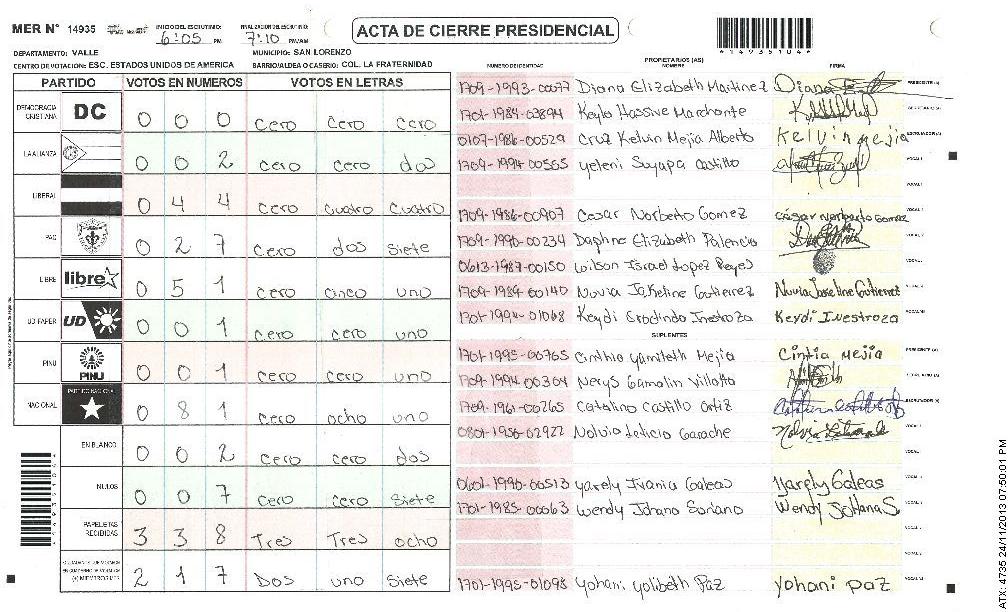 MER N° 14935 INICIO DEL ESCRUTINIO: 6:05 PM FINALIZACION DEL ESCRUTINIO: 7:10 PM/AM
ACTA DE CIERRE PRESIDENCIAL
*14935104*
DEPARTAMENTO: VALLE MUNICIPIO: SAN LORENZO
CENTRO DE VOTACION: ESC. ESTADOS UNIDOS DE AMERICA BARRIO/ALDEA O CASERIO: COL. LA FRATERNIDAD
PARTIDO VOTOS EN NUMEROS VOTOS EN LETRAS
DEMOCRACIA CRISTIANA DC 0 0 0 Cero Cero Cero
LA ALIANZA 0 0 2 Cero Cero dos
LIBERAL 0 4 4 Cero Cuatro Cuatro
PAC 0 2 7 Cero dos Siete
LIBRE libre 0 5 1 Cero Cinco uno
UD FAPER UD 0 0 1 Cero Cero uno
PINU PINU 0 0 1 Cero Cero uno
NACIONAL PARTIDO NACIONAL 0 8 1 Cero ocho uno
EN BLANCO 0 0 2 Cero Cero dos
NULOS 0 0 7 Cero Cero Siete
PAPELETAS RECIBIDAS 3 3 8 Tres Tres ocho
2 1 7 Dos uno Siete
PROPIETARIOS (AS)
NUMERO DE IDENTIDAD NOMBRE FIRMA
1709-1993-00077 Diana Elizabeth Martinez Diana PRESIDENTE (A)
1701-1984-03894 Keyla Hassive Marchante SECRETARIO (A)
0107-1986-00529 Cruz Kelvin Mejia Alberto Kelvin mejia ESCRUTADOR (A)
1709-1994-00565 yeleni Sayapa Castillo VOCAL I
1709-1986-00907 Cesar Norberto Gomez César Norberto Gomez
1709-1990-00234 Daphne Elizabeth Palencia
0613-1987-00150 Wilson Israel Lopez Reyes
1709-1984-00140 Nuvia Jakeline Gutierrez Nuvia Joseline Gutierrez
1701-1994-01068 Keydi Erodinda Inestroza Keydi Inestroza
SUPLENTES
1701-1995-00765 Cinthia Yamileth Mejia Cintia Mejia PRESIDENTE (A)
1709-1994-00304 Nerys Gamalin Villatta SECRETARIO (A)
1709-1961-00265 Catalino Castillo Ortiz ESCRUTADOR (A)
0801-1956-02922 Nolvia Leticia Garache Nolvia
0601-1990-00513 Yarely Ivania Galeas Yarely Galeas
1701-1985-00063 Wendy Johana Soriano Wendy Johana S
1701-1995-01098 Yohani Yolibeth Paz Yohani Paz
ATX: 4735 24/11/2013 07:50:01 PM